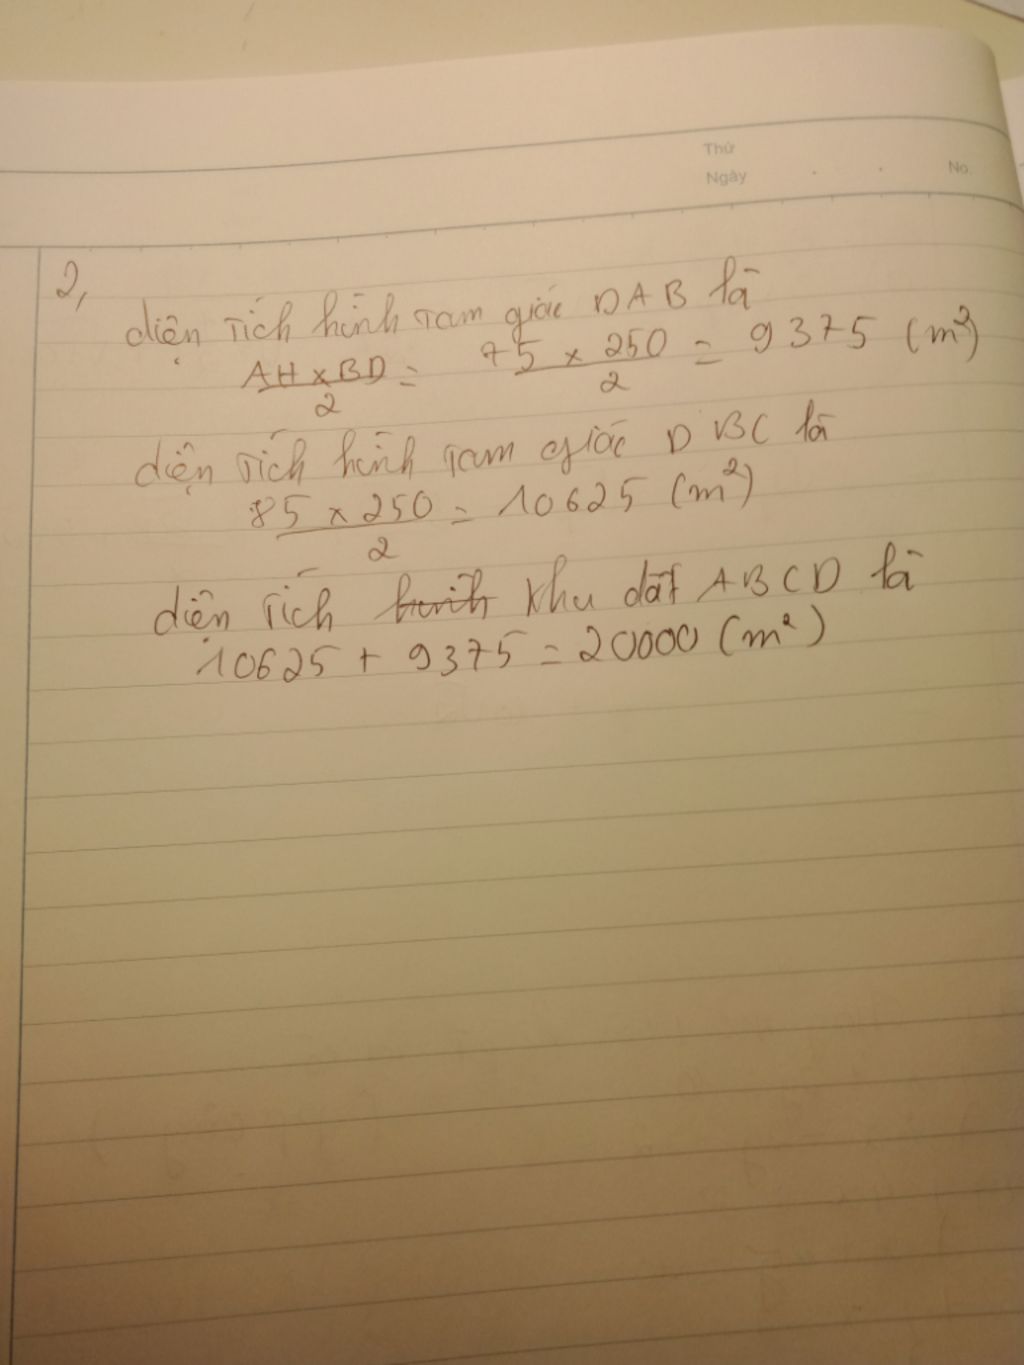 Thứ
Ngày . . No.
2,
diện tích hình tam giác DAB là
AH x BD / 2 = 75 x 250 / 2 = 9375 (m²)
diện tích hình tam giác DBC là
85 x 250 / 2 = 10625 (m²)
diện tích khu đất ABCD là
10625 + 9375 = 20000 (m²)